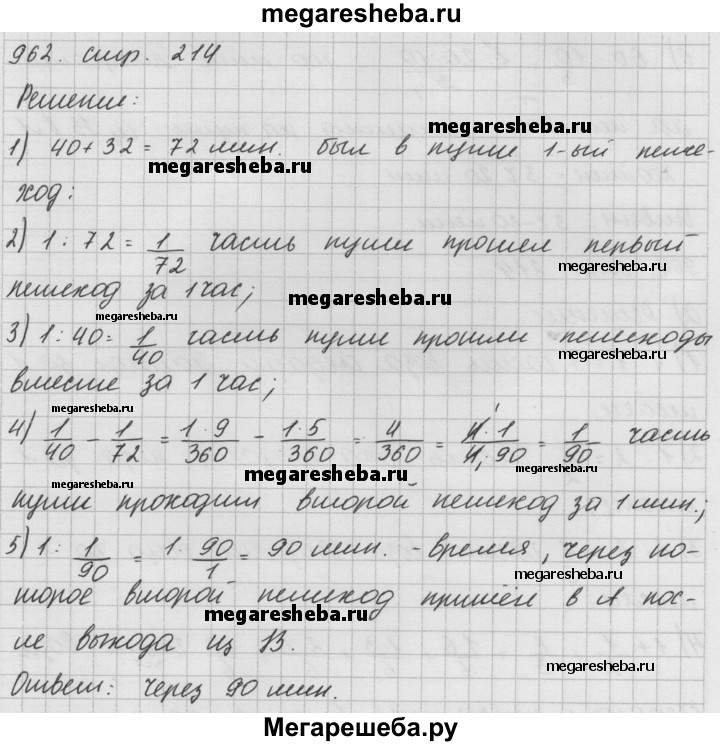 megaresheba.ru
962. стр. 214
megaresheba.ru
Решение:
megaresheba.ru
1) 40 + 32 = 72 мин. был в пути 1-ый пеше-
megaresheba.ru
ход:
2) 1 : 72 = 1/72 часть пути прошел первый
megaresheba.ru
пешеход за 1 час;
megaresheba.ru
megaresheba.ru
3) 1 : 40 = 1/40 часть пути прошли пешеходы
megaresheba.ru
вместе за 1 час;
megaresheba.ru
4) 1/40 - 1/72 = 1·9/360 - 1·5/360 = 4/360 = 4·1/4·90 = 1/90 часть
megaresheba.ru
megaresheba.ru
megaresheba.ru
пути проходит второй пешеход за 1 мин.;
5) 1 : 1/90 = 1 · 90/1 = 90 мин. - время, через ко-
megaresheba.ru
торое второй пешеход пришёл в A пос-
megaresheba.ru
ле выхода из B.
megaresheba.ru
megaresheba.ru
Ответ: через 90 мин.
Мегарешеба.ру